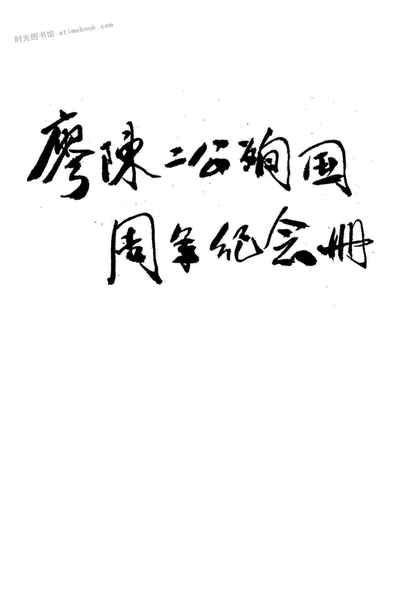 时光图书馆 atimebook.com
廖陳二公殉国
周年纪念册